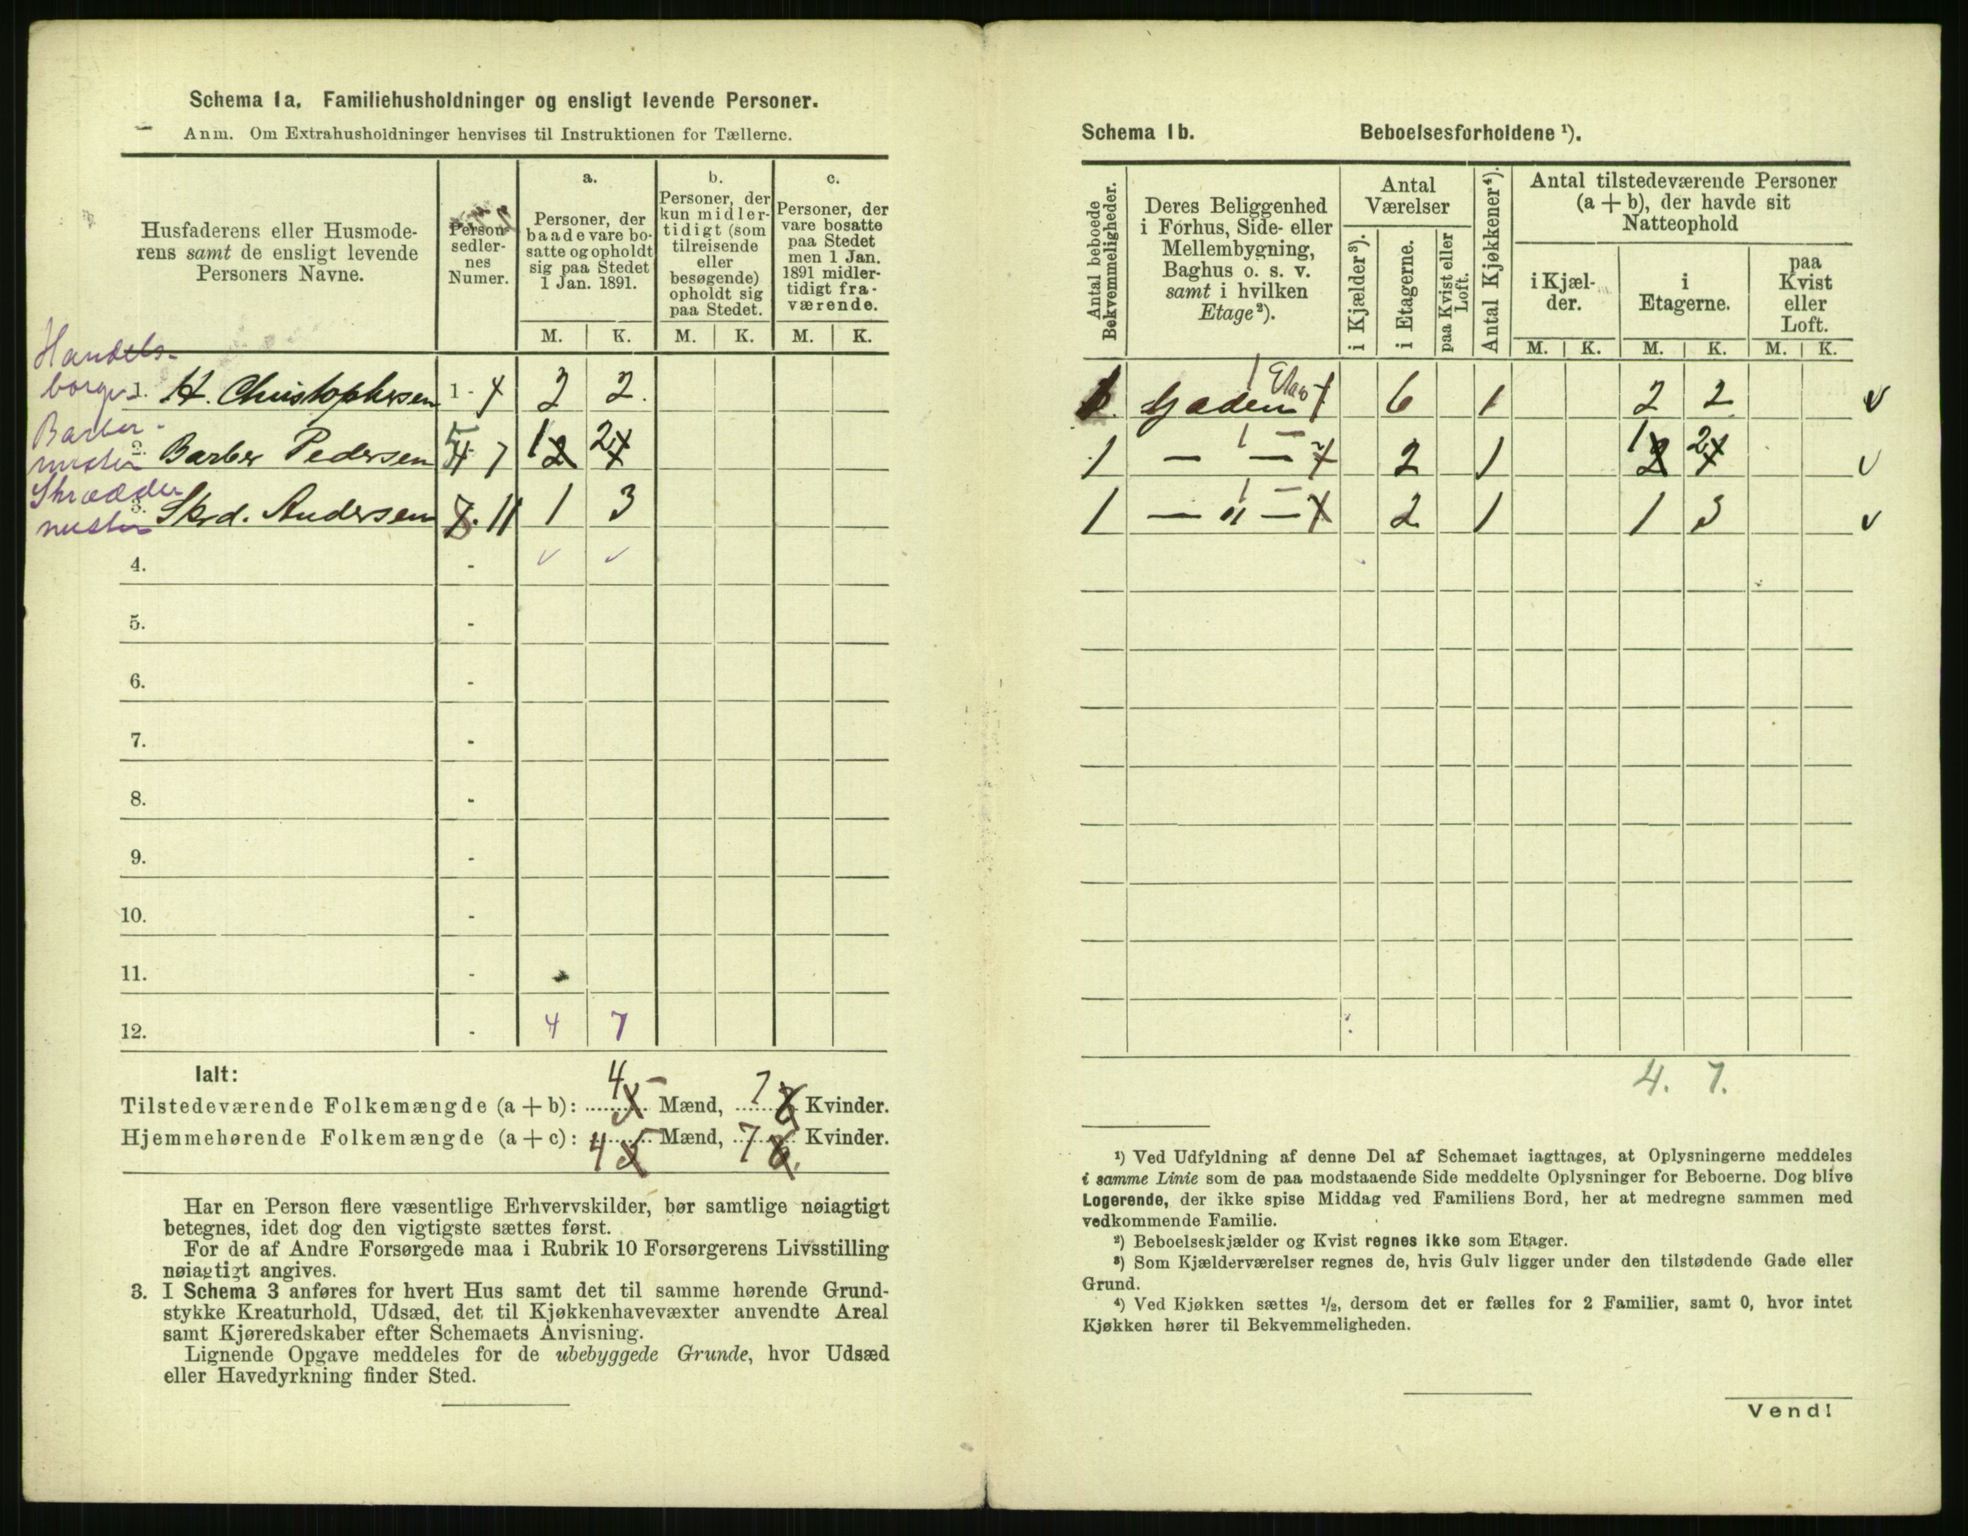 Schema 1a. Familiehusholdninger og ensligt levende Personer.
Anm. Om Extrahusholdninger henvises til Instruktionen for Tællerne.
Husfaderens eller Husmode-
rens samt de ensligt levende
Personers Navne.
Person-
sedler-
nes
Numer.
a.
Personer, der
baade vare bo-
satte og opholdt
sig paa Stedet
1 Jan. 1891.
b.
Personer, der
kun midler-
tidigt (som
tilreisende
eller
besøgende)
opholdt sig
paa Stedet.
c.
Personer, der
vare bosatte
paa Stedet
men 1 Jan.
1891 midler-
tidigt fra-
værende.
M. K. M. K. M. K.
Handels-
borger 1. H. Christophersen 1 - 4 2 2.
Barber-
mester 2. Barber Pedersen 5 7 1 2
Skrædder
mester 3. Skrd. Andersen 8. 11 1 3
4. -
5. -
6. -
7. -
8. -
9. -
10. -
11. -
12. - 4 7
Ialt:
Tilstedeværende Folkemængde (a + b): 4 Mænd, 7 Kvinder.
Hjemmehørende Folkemængde (a + c): 4 Mænd, 7 Kvinder.
Har en Person flere væsentlige Erhvervskilder, bør samtlige nøiagtigt
betegnes, idet dog den vigtigste sættes først.
For de af Andre Forsørgede maa i Rubrik 10 Forsørgerens Livsstilling
nøiagtigt angives.
3. I Schema 3 anføres for hvert Hus samt det til samme hørende Grund-
stykke Kreaturhold, Udsæd, det til Kjøkkenhavevæxter anvendte Areal
samt Kjøreredskaber efter Schemaets Anvisning.
Lignende Opgave meddeles for de ubebyggede Grunde, hvor Udsæd
eller Havedyrkning finder Sted.
Schema 1b. Beboelsesforholdene ¹).
Antal beboede
Bekvemmeligheder.
Deres Beliggenhed
i Forhus, Side- eller
Mellembygning,
Baghus o. s. v.
samt i hvilken
Etage²).
Antal
Værelser
i Kjælder³).
i Etagerne.
paa Kvist eller
Loft.
Antal Kjøkkener⁴).
Antal tilstedeværende Personer
(a + b), der havde sit
Natteophold
i Kjæl-
der.
i
Etagerne.
paa
Kvist
eller
Loft.
M. K. M. K. M. K.
1 Gaden 1 Etag 6 1 2 2
1 — 1 — 2 1 1 2
1 — " — 1 — 2 1 1 3
4. 7.
¹) Ved Udfyldning af denne Del af Schemaet iagttages, at Oplysningerne meddeles
i samme Linie som de paa modstaaende Side meddelte Oplysninger for Beboerne. Dog blive
Logerende, der ikke spise Middag ved Familiens Bord, her at medregne sammen med
vedkommende Familie.
²) Beboelseskjælder og Kvist regnes ikke som Etager.
³) Som Kjælderværelser regnes de, hvis Gulv ligger under den tilstødende Gade eller
Grund.
⁴) Ved Kjøkken sættes ½, dersom det er fælles for 2 Familier, samt 0, hvor intet
Kjøkken hører til Bekvemmeligheden.
Vend!